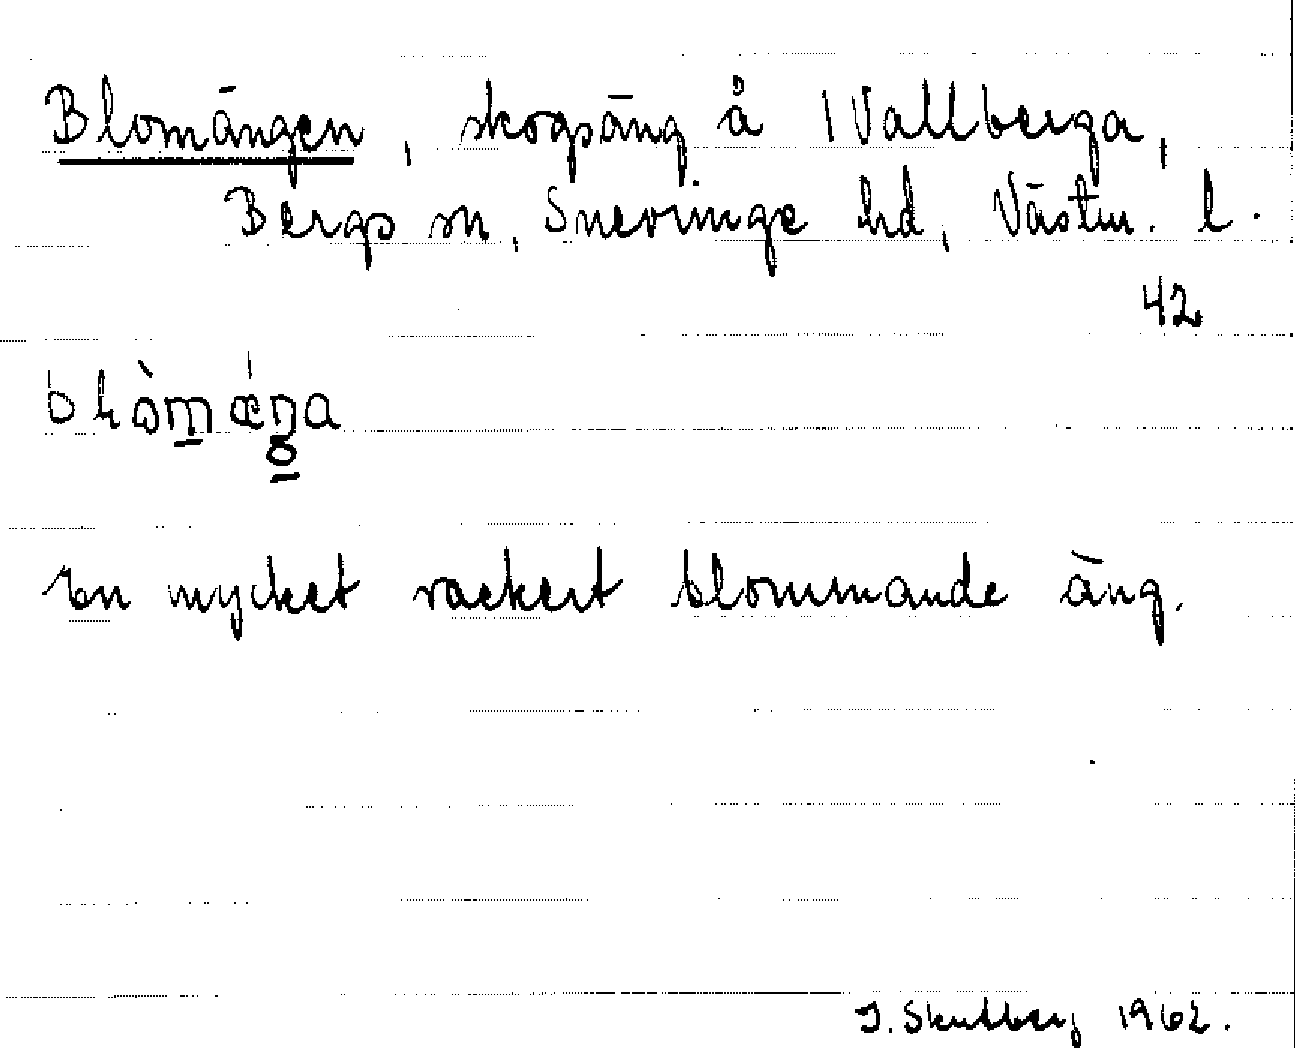 Blomängen, skogsäng å 1 Vallberga,
Bergs sn, Snevringe hd, Västm. l.
42
blòmǽŋa
En mycket vackert blommande äng.
1962.